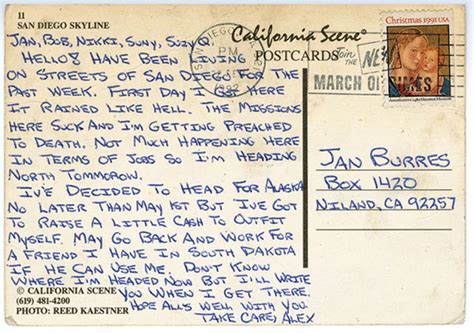 11
SAN DIEGO SKYLINE
California Scene®
POSTCARDS
Christmas 1991 USA
SAN DIEGO
PM
1992
Join the
MARCH OF DIMES
Jan, Bob, Nikki, Suny, Suzy,
Hello! Have been living
on streets of San Diego for the
past week. First day I got here
it rained like hell. The missions
here suck and I'm getting preached
to death. Not much happening here
in terms of jobs so I'm heading
north tommorow.
Iv'e decided to head for Alaska
no later than May 1st but I've got
to raise a little cash to outfit
myself. May go back and work for
a friend I have in South Dakota
if he can use me. Don't know
where I'm headed now but I'll write
you when I get there.
Hope all's well with you.
Take care, Alex
Jan Burres
Box 1420
Niland, CA 92257
© CALIFORNIA SCENE
(619) 481-4200
PHOTO: REED KAESTNER